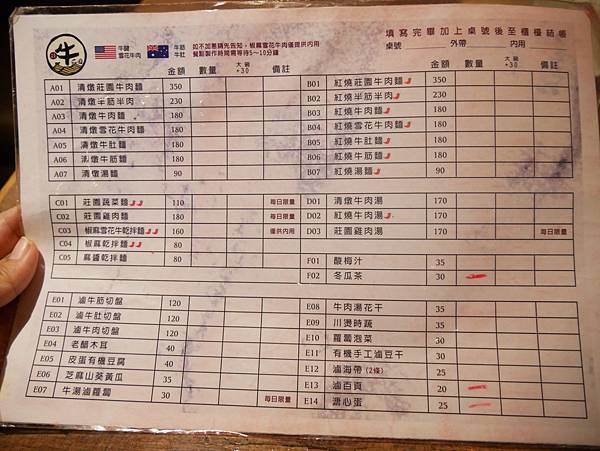 牛
牛腱
雪花牛肉
牛筋
牛肚
如不加蔥請先告知，椒麻雪花牛肉僅提供內用
餐點製作時間需等待5~10分鐘
填寫完畢加上桌號後至櫃檯結帳
桌號 外帶 內用
金額 數量 大碗+30 備註
A01 清燉莊園牛肉麵 350
A02 清燉半筋半肉 230
A03 清燉牛肉麵 180
A04 清燉雪花牛肉麵 180
A05 清燉牛肚麵 180
A06 清燉牛筋麵 180
A07 清燉湯麵 90
金額 數量 大碗+30 備註
B01 紅燒莊園牛肉麵 350
B02 紅燒半筋半肉 230
B03 紅燒牛肉麵 180
B04 紅燒雪花牛肉麵 180
B05 紅燒牛肚麵 180
B06 紅燒牛筋麵 180
B07 紅燒湯麵 90
C01 莊園蔬菜麵 110 每日限量
C02 莊園雞肉麵 180 每日限量
C03 椒麻雪花牛乾拌麵 160 僅供內用
C04 椒麻乾拌麵 80
C05 麻醬乾拌麵 80
D01 清燉牛肉湯 170
D02 紅燒牛肉湯 170
D03 莊園雞肉湯 170 每日限量
F01 酸梅汁 35
F02 冬瓜茶 30
E01 滷牛筋切盤 120
E02 滷牛肚切盤 120
E03 滷牛肉切盤 120
E04 老醋木耳 40
E05 皮蛋有機豆腐 40
E06 芝麻山葵黃瓜 35
E07 牛湯滷蘿蔔 30 每日限量
E08 牛肉湯花干 35
E09 川燙時蔬 35
E10 蘿蔔泡菜 30
E11 有機手工滷豆干 30
E12 滷海帶(2條) 25
E13 滷百頁 20
E14 溏心蛋 25